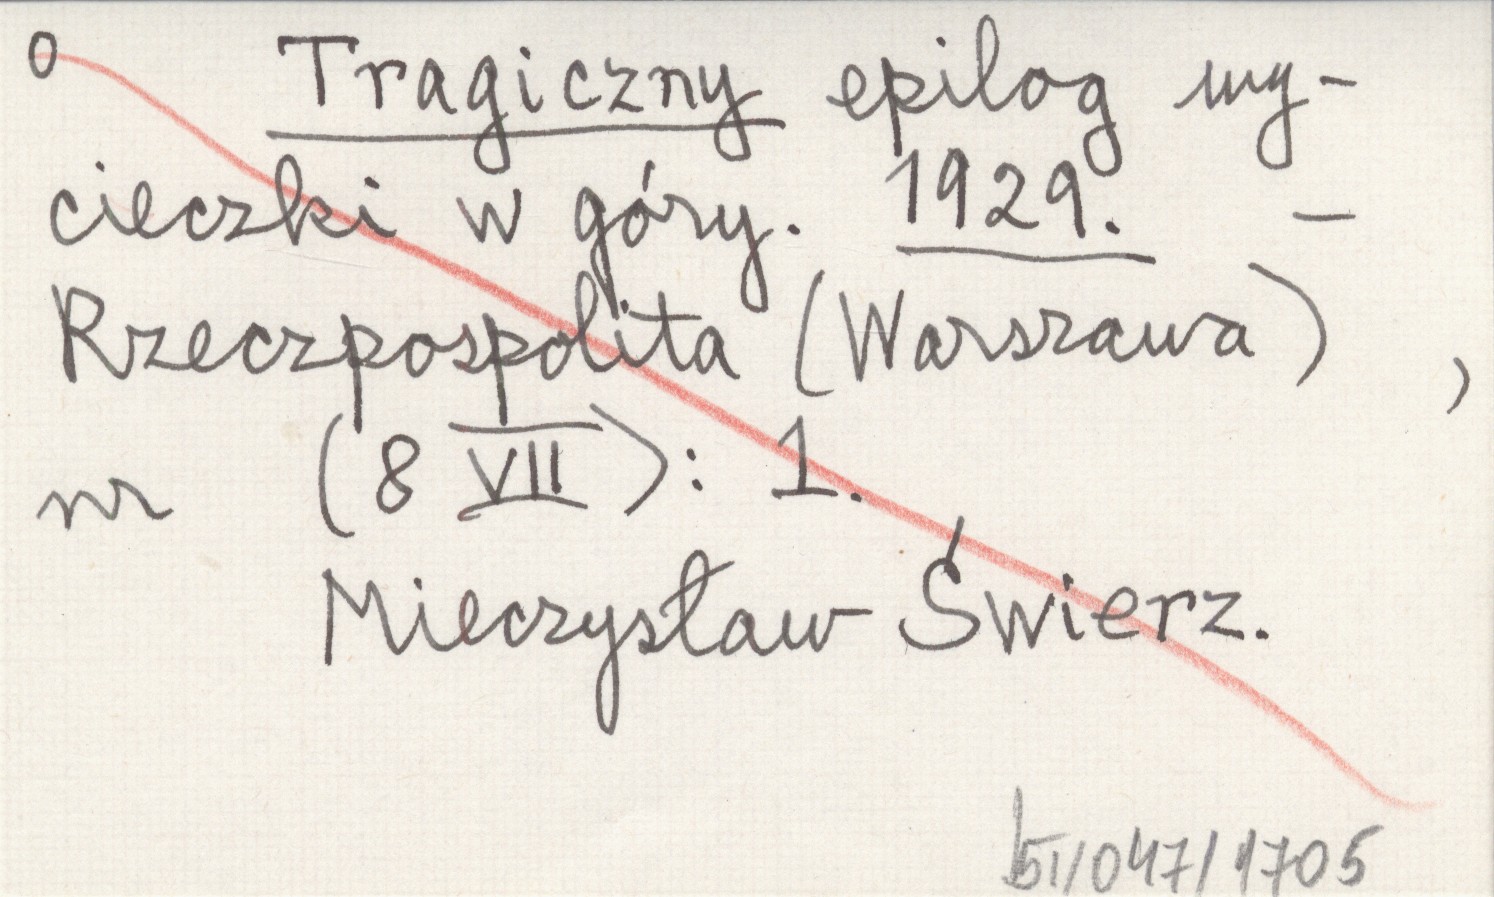 o Tragiczny epilog wy-
cieczki w góry. 1929. –
Rzeczpospolita (Warszawa) ,
nr (8 VII): 1.
Mieczysław Świerz.
/047/1705